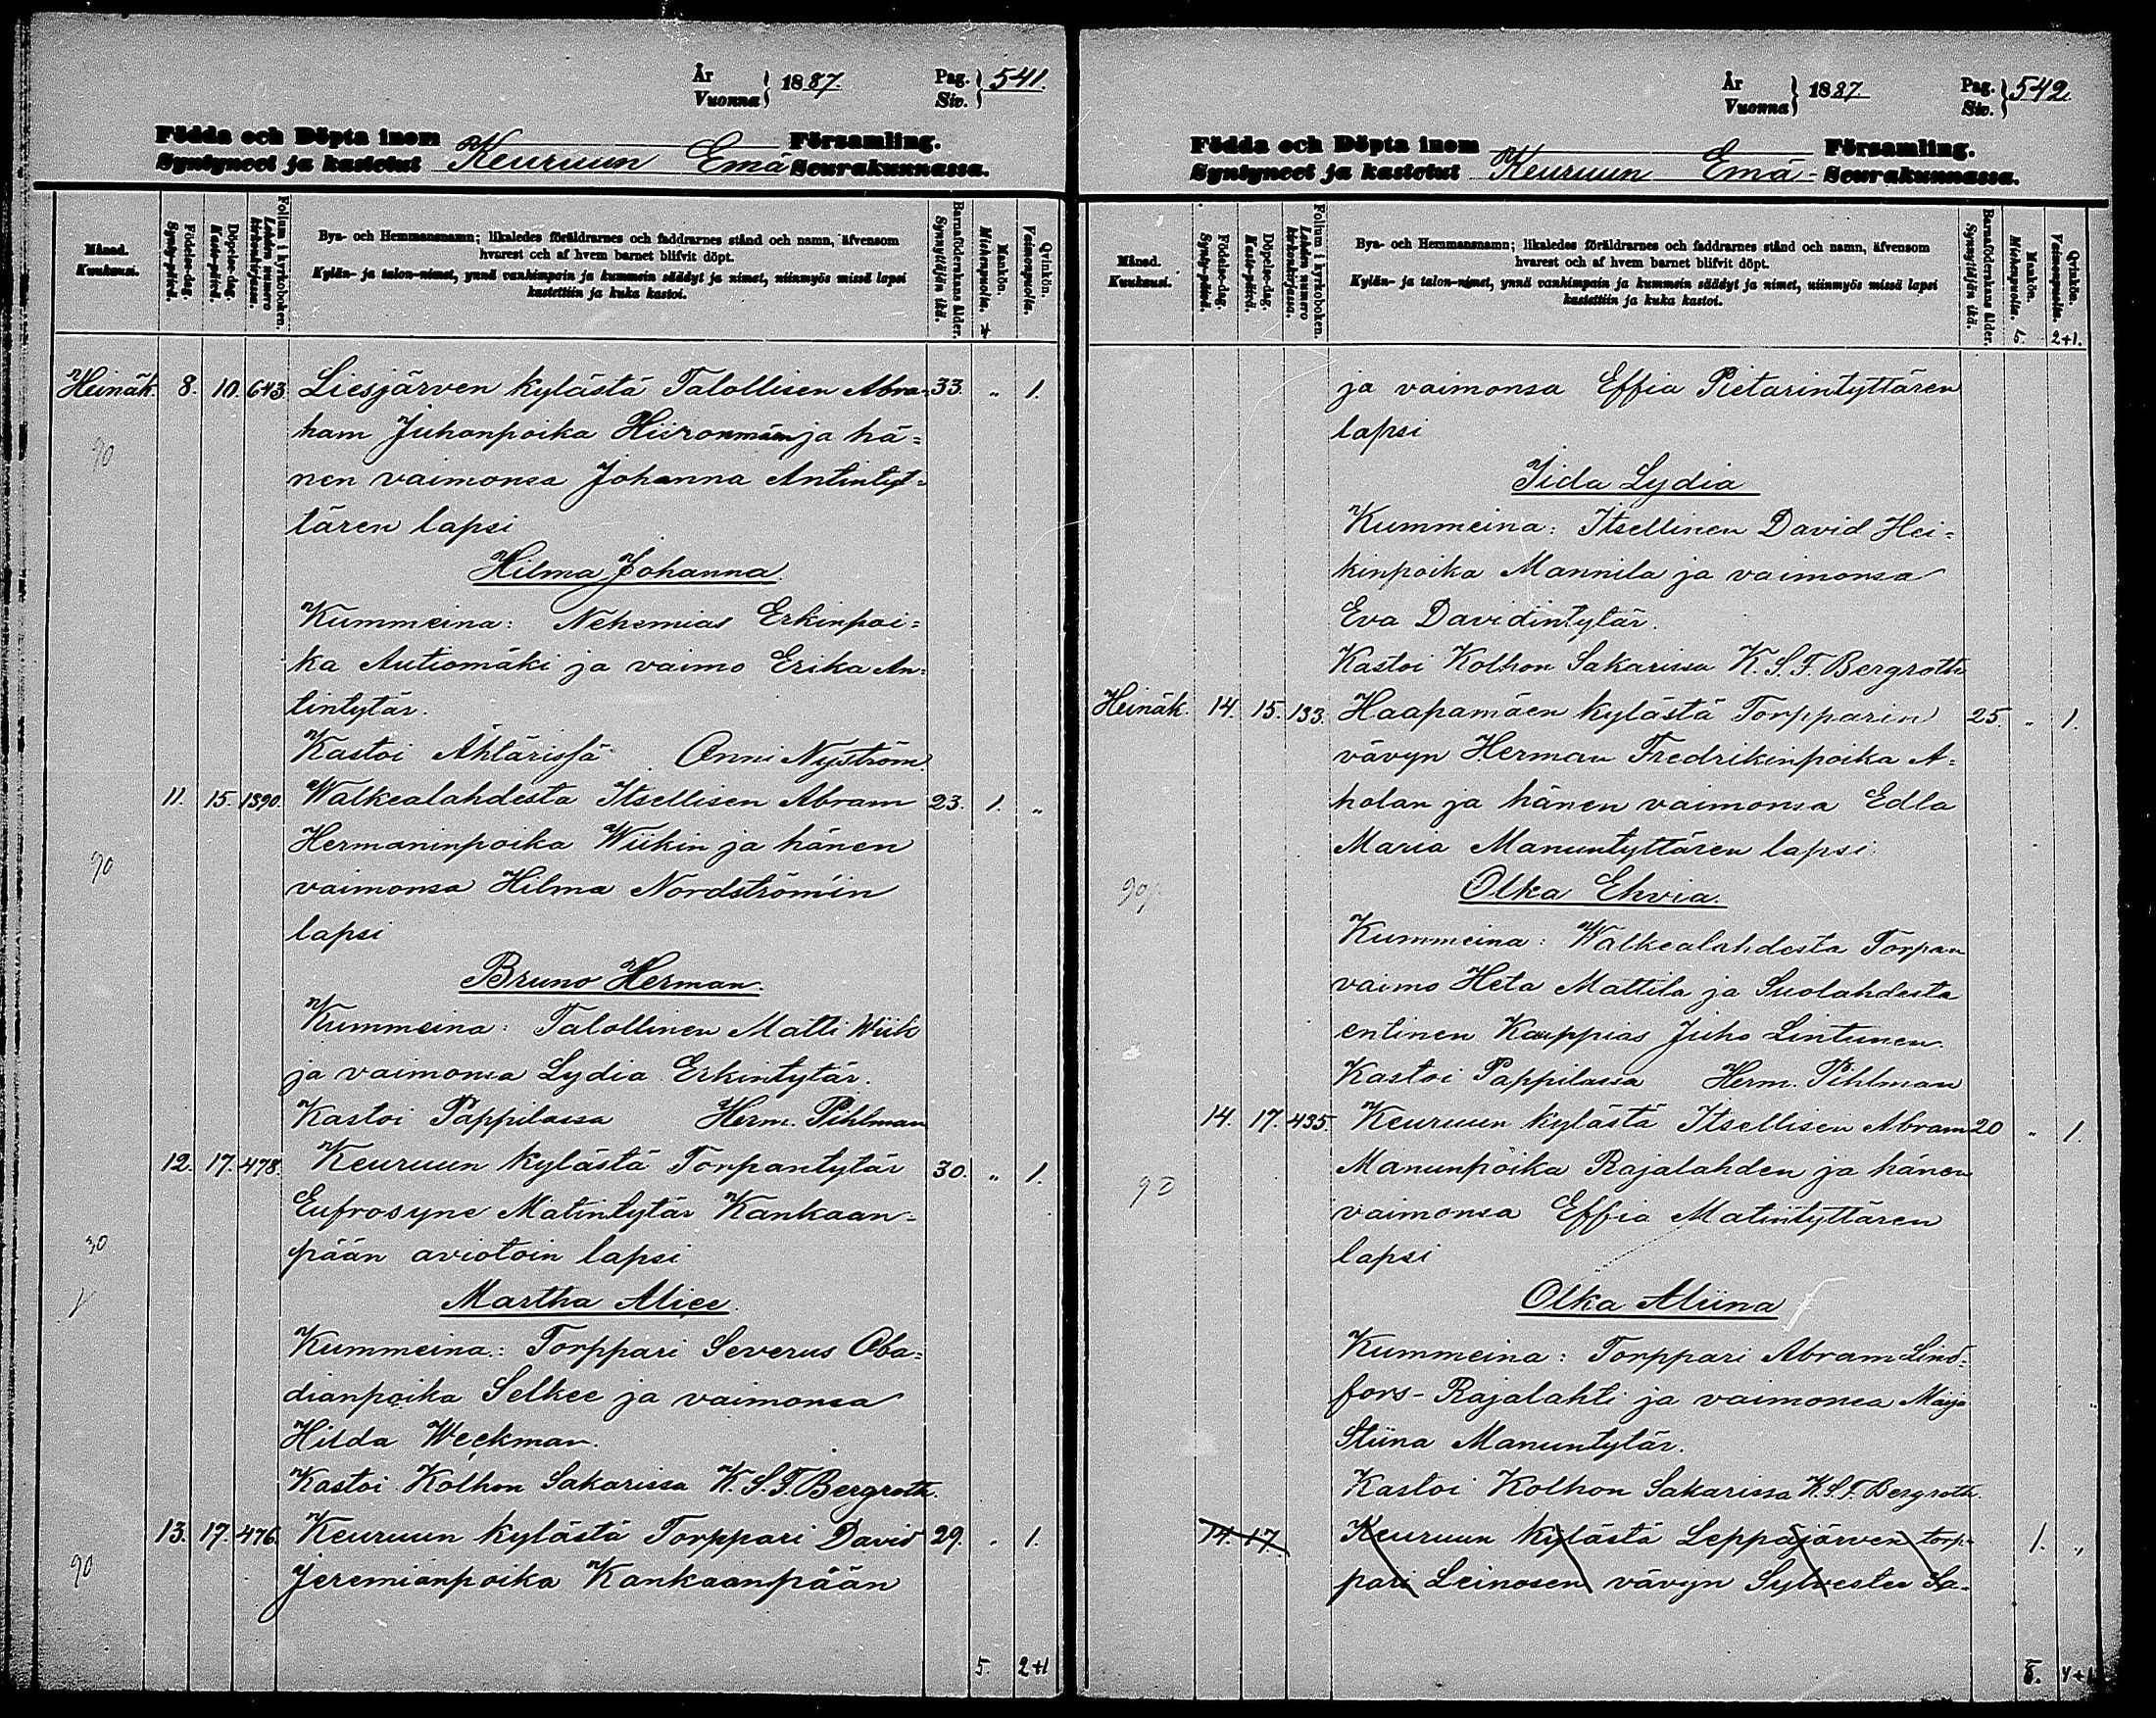 År
Vuonna } 1887.
Pag.
Siv. } 541.
Födda och Döpta inom Församling.
Syntyneet ja kastetut Keuruun Emä Seurakunnassa.
Månad.
Kuukausi.
Födelse-dag.
Synty-päivä.
Döpelse-dag.
Kaste-päivä.
Folium i kyrkoboken.
Lehden numero kirkonkirjassa.
Bya- och Hemmansnamn; likaledes föräldrarnes och faddrarnes stånd och namn, äfvensom
hvarest och af hvem barnet blifvit döpt.
Kylän- ja talon-nimet, ynnä vanhimpain ja kummein säädyt ja nimet, niinmyös missä lapsi
kastettiin ja kuka kastoi.
Barnaföderskans ålder.
Synnyttäjän ikä.
Mankön.
Miehenpuolia. 4
Qvinkön.
Vaimonpuolia.
Heinäk. 8. 10. 643. Liesjärven kylästä Talollisen Abra- 33. „ 1.
ham Juhonpoika Hiironmäen ja hä=
90
nen vaimonsa Johanna Antintyt=
tären lapsi
Hilma Johanna.
Kummeina: Nehemias Erkinpoi=
ka Autiomäki ja vaimo Erika An=
tintytär.
Kastoi Ähtärissä Onni Nyström.
11. 15. 1390. Walkealahdesta Itsellisen Abram 23. 1. „
Hermaninpoika Wiikin ja hänen
90
vaimonsa Hilma Nordström'in
lapsi
Bruno Herman.
Kummeina: Talollinen Matti Wiik
ja vaimonsa Lydia Erkintytär.
Kastoi Pappilassa Herm. Pihlman
12. 17. 478. Keuruun kylästä Torpantytär 30. „ 1.
Eufrosyne Matintytär Kankaan=
pään aviotoin lapsi
Martha Alice.
Kummeina: Torppari Severus Oba=
dianpoika Selkee ja vaimonsa
Hilda Weckman.
Kastoi Kolhon Sakarissa K. S. F. Bergroth.
13. 17. 476. Keuruun kylästä Torppari David 29. „ 1.
90
Jeremianpoika Kankaanpään
5. 2+1
År
Vuonna } 1887.
Pag.
Siv. } 542.
Födda och Döpta inom Församling.
Syntyneet ja kastetut Keuruun Emä- Seurakunnassa.
Månad.
Kuukausi.
Födelse-dag.
Synty-päivä.
Döpelse-dag.
Kaste-päivä.
Folium i kyrkoboken.
Lehden numero kirkonkirjassa.
Bya- och Hemmansnamn; likaledes föräldrarnes och faddrarnes stånd och namn, äfvensom
hvarest och af hvem barnet blifvit döpt.
Kylän- ja talon-nimet, ynnä vanhimpain ja kummein säädyt ja nimet, niinmyös missä lapsi
kastettiin ja kuka kastoi.
Barnaföderskans ålder.
Synnyttäjän ikä.
Mankön.
Miehenpuolia. 5.
Qvinkön.
Vaimonpuolia. 2+1.
ja vaimonsa Effia Pietarintyttären
lapsi
Iida Lydia
Kummeina: Itsellinen David Hei=
kinpoika Mannila ja vaimonsa
Eva Davidintytär.
Kastoi Kolhon Sakarissa K. S. F. Bergroth
Heinäk. 14. 15. 133. Haapamäen kylästä Torpparin 25. „ 1.
vävyn Herman Fredrikinpoika A=
holan ja hänen vaimonsa Edla
Maria Manuntyttären lapsi
90
Olka Ehvia.
Kummeina: Walkealahdesta Torpan
vaimo Heta Mattila ja Suolahdesta
entinen Kauppias Juho Lintunen.
Kastoi Pappilassa Herm. Pihlman
14. 17. 435. Keuruun kylästä Itsellisen Abram 20 „ 1.
Manunpoika Rajalahden ja hänen
90
vaimonsa Effia Matintyttären
lapsi
Olka Aliina
Kummeina: Torppari Abram Lind=
fors-Rajalahti ja vaimonsa Maija
Stiina Manuntytär.
Kastoi Kolhon Sakarissa K. S. F. Bergroth.
14. 17. Keuruun kylästä Leppäjärven torp= 1. „
pari Leinosen vävyn Sylvester Sa=
6. 4+1